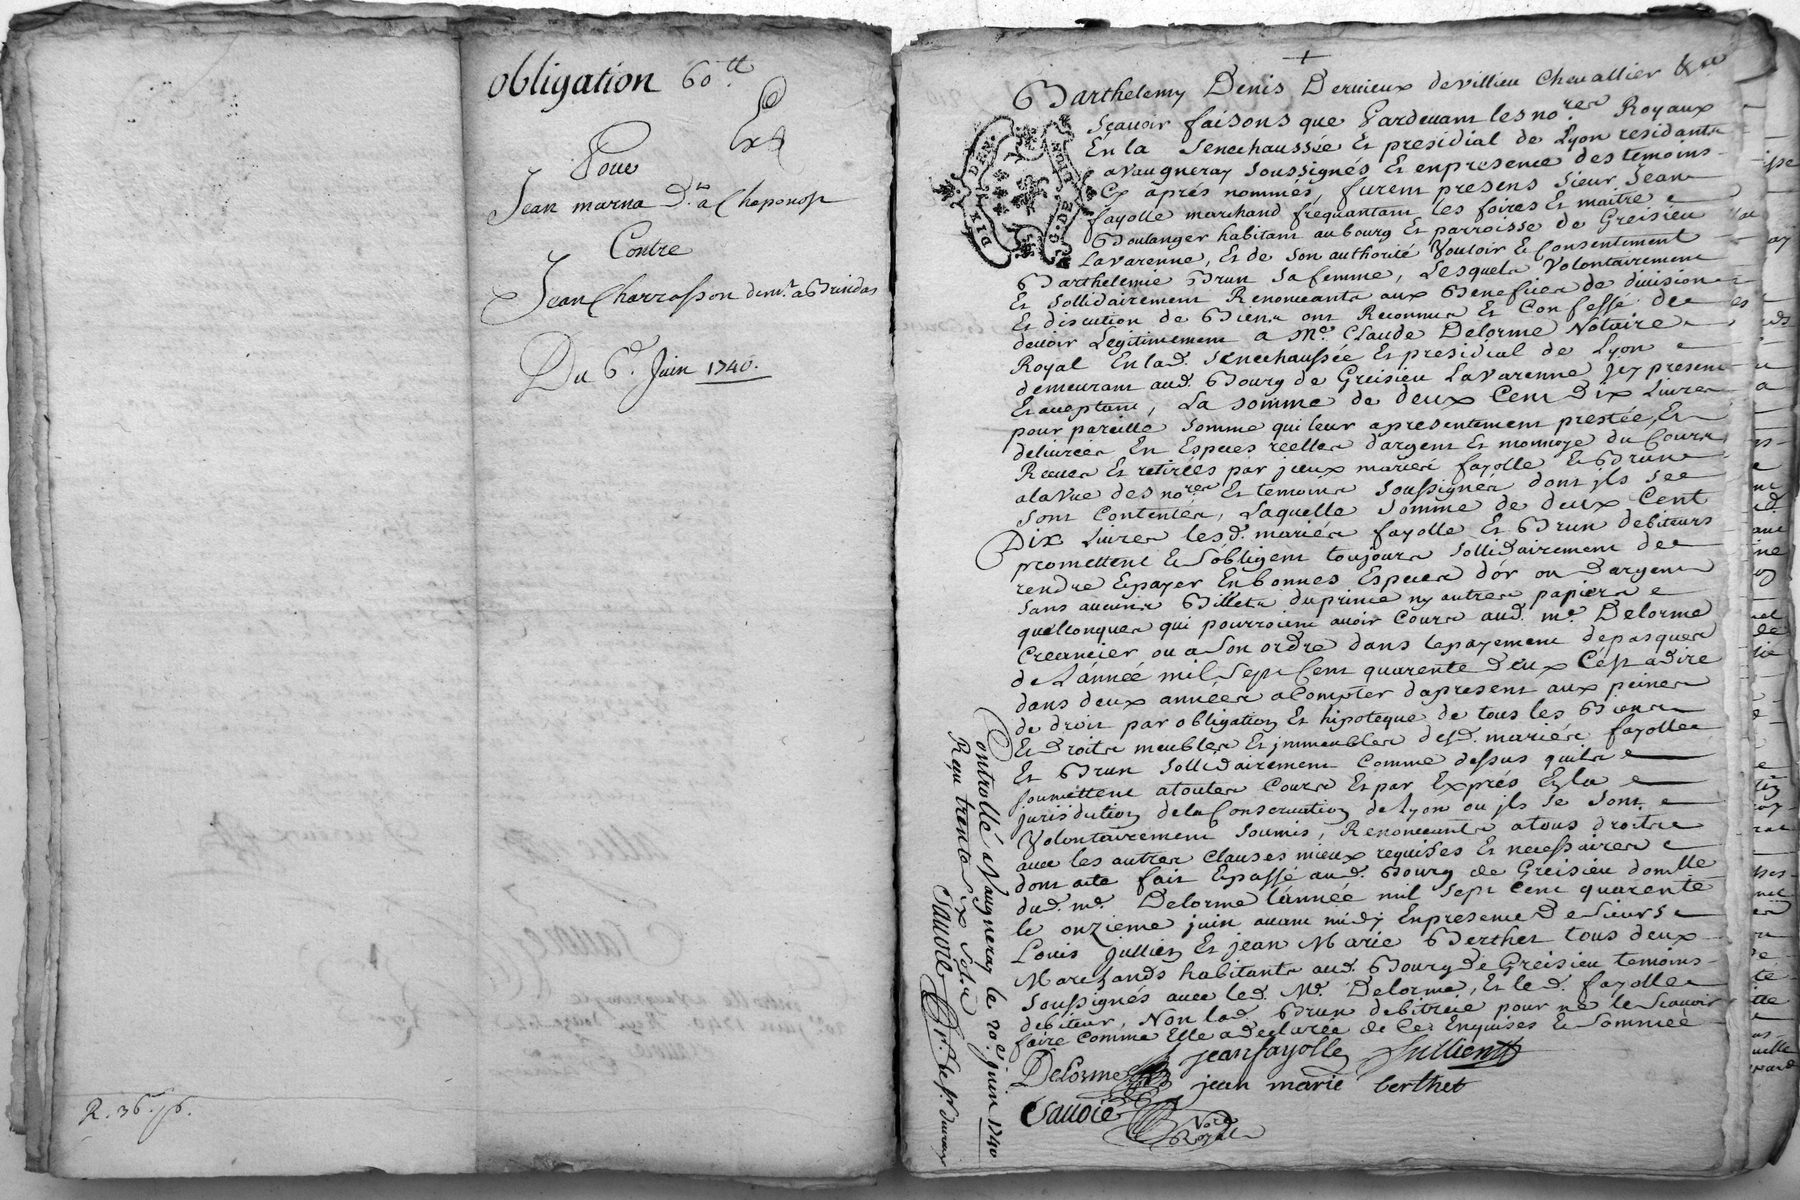 obligation 60 tt
Pour
Jean marna Dt. a Chaponost
Contre
Jean Charrasson demt. a Brindas
Du 6e. Juin 1740.
R. 36 s 6.
+
Barthelemy Denis Dervieux devillieu Chevallier &ra
sçavoir faisons que Pardevant les nores Royaux
En la Senechaussée Et presidial de Lyon residants
a Vaugneray soussignés Et enpresence des temoins
Cy aprés nommés, furent presens Sieur Jean
fayolle marchand frequantant les foires Et maitre
Boulanger habitant aubourg Et parroisse de Greisieu
Lavarenne, Et de son authorité Vouloir & Consentement
Barthelemie Brun sa femme, Lesquels Volontairement
Et sollidairement Renonceants aux Benefices de division
Et discution de Biens ont Reconnus Et Confessé de
devoir Legitimement a Me. Claude Delorme Notaire
Royal En lad. Senechaussée Et presidial de Lyon
demeurant aud. Bourg de Greisieu Lavarenne jcy present
Et aceptant, La somme de deux Cent Dix Livres
pour pareille somme qui leur apresentement prestée, Et
delivrées En Especes reelles d'argent Et monnoye du Cours
Receues Et retirées par jceux mariés fayolle Et Brun
alavue des nores Et temoins soussignés dont jls se
sont Contentés, Laquelle somme de deux Cent
Dix Livres lesd. mariés fayolle Et Brun debiteurs
promettent & sobligent toujours sollidairement de
rendre Epayer En bonnes Especes d'or ou d'argent
sans aucuns Billets duprince ny autres papiers
quelconques qui pourroient avoir Cours aud. me. Delorme
Creancier ou a son ordre dans lepayement depasques
de L'année mil sept Cent quarente deux C'est adire
dans deux années aCompter dapresent aux peines
de droit par obligation Et hipoteque de tous les Biens
Et Droits meubles Et jmmeubles desd. mariés fayolle
Et Brun sollidairement Comme dessus quils
soumettent atoutes Cours Et par Exprés Ezla
jurisdiction dela Conservation de Lyon ou jls se sont
Volontairement soumis, Renonceants atous droits
avec les autres clauses mieux requises Et necessaires
dont acte fait Epassé aud. Bourg de Greisieu domlle
dud. me. Delorme l'année mil sept Cent quarente
le onzieme juin avant midy Enpresence De Sieurs
Louis Jullien Et jean Marie Berthet tous deux
Marchands habitants aud. Bourg De Greisieu temoins
soussignés avec led. Me. Delorme, Et led. fayolle
debiteur, Non lad. Brun debitrice pour ne le scavoir
faire comme Elle adeclarée de Ce Enquises Et Sommée
Delorme jeanfayolle Jullien
jean marie berthet
Savoie
Nore
Royal
Controllé a Vaugneray le 20e. juin 1740
Reçu trente six sols
Savoie
DIX DEN.
G. DE